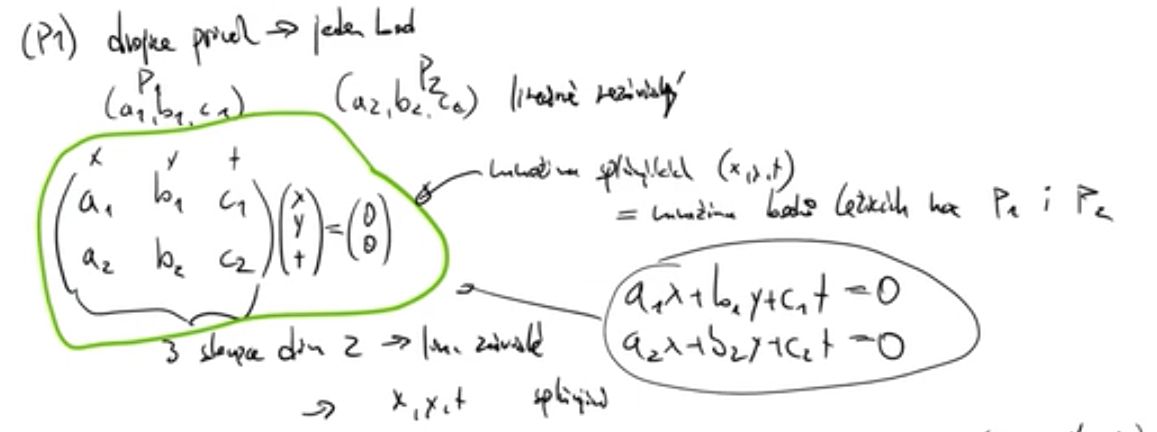 (P1) dvojice přímek → jeden bod
P₁ P₂
(a₁, b₁, c₁) (a₂, b₂, c₂) lineárně nezávislý
x y t
(a₁ b₁ c₁) (x) = (0)
(a₂ b₂ c₂) (y t) (0)
množina splňujících (x,y,t)
= množina bodů ležících na P₁ i P₂
a₁x+b₁y+c₁t=0
a₂x+b₂y+c₂t=0
3 sloupce dim 2 → lin. závislé
→ x, y, t splňující